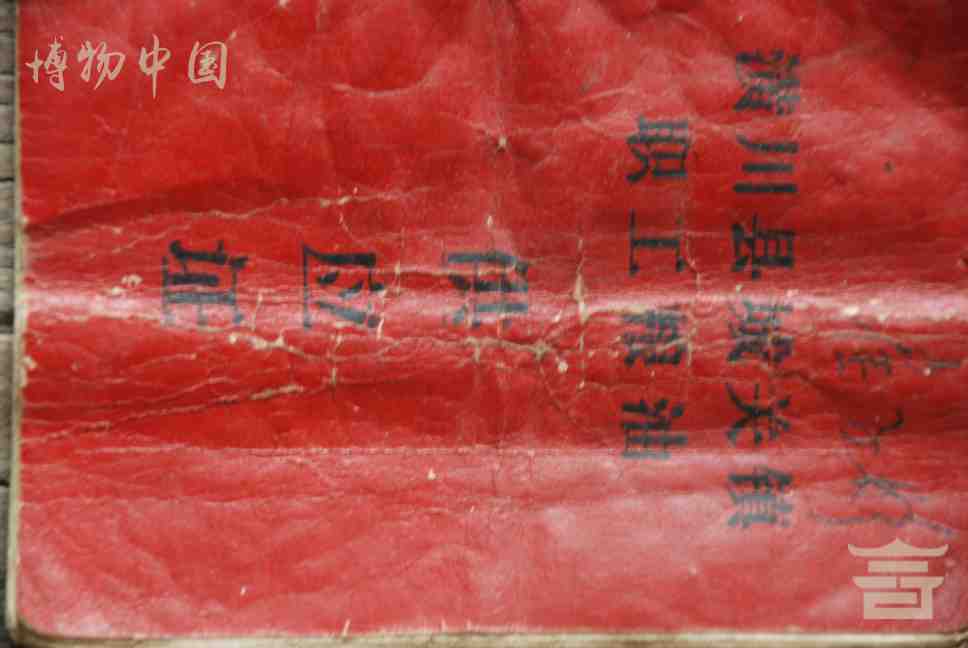 博物中国
潢川县城关镇
职工粮油
供应证